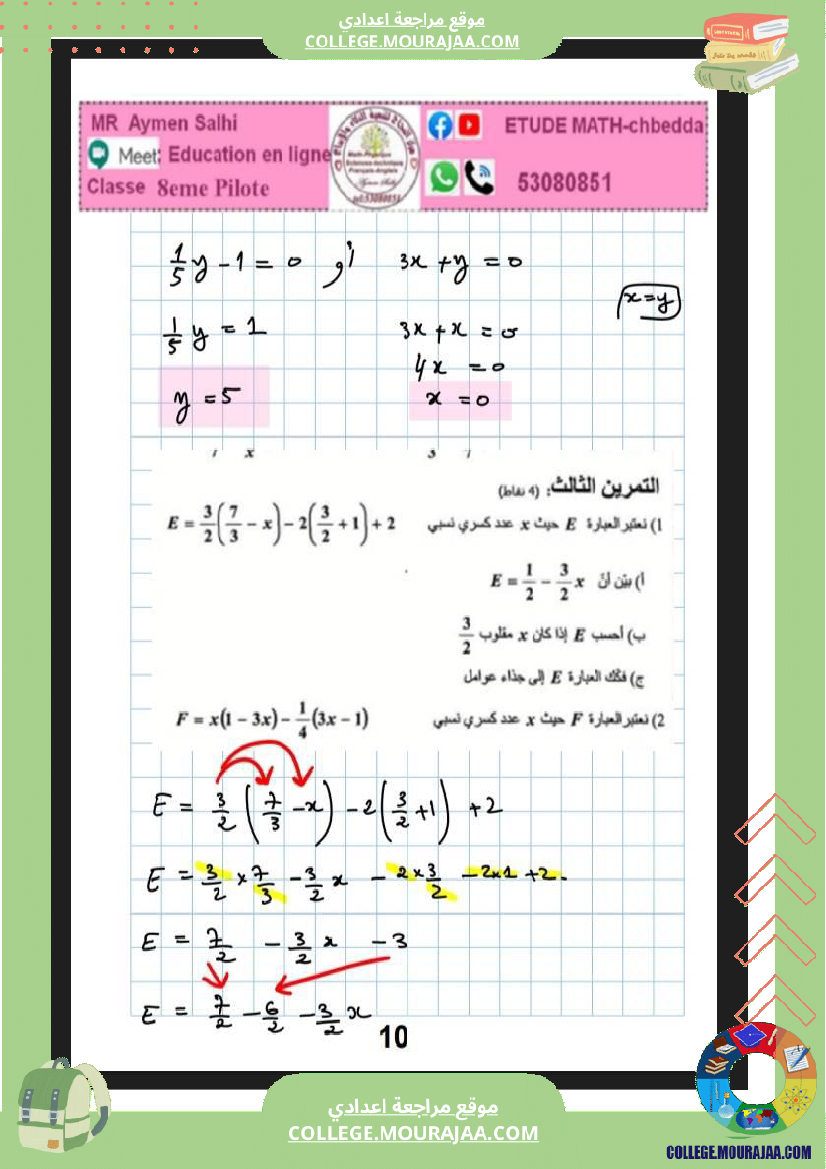 موقع مراجعة اعدادي
COLLEGE.MOURAJAA.COM
MR Aymen Salhi
Meet: Education en ligne
Classe 8eme Pilote
ETUDE MATH-chbedda
53080851
1/5 y - 1 = 0 أو 3x + y = 0
x = y
1/5 y = 1 3x + x = 0
4x = 0
y = 5 x = 0
التمرين الثالث: (4 نقاط)
1) نعتبر العبارة E حيث x عدد كسري نسبي E = 3/2(7/3 - x) - 2(3/2 + 1) + 2
أ) بيّن أنّ E = 1/2 - 3/2 x
ب) أحسب E إذا كان x مقلوب 3/2
ج) فكّك العبارة E إلى جذاء عوامل
2) نعتبر العبارة F حيث x عدد كسري نسبي F = x(1 - 3x) - 1/4(3x - 1)
E = 3/2 (7/3 - x) - 2(3/2 + 1) + 2
E = 3/2 × 7/3 - 3/2 x - 2×3/2 - 2×1 + 2
E = 7/2 - 3/2 x - 3
E = 7/2 - 6/2 - 3/2 x
10
موقع مراجعة اعدادي
COLLEGE.MOURAJAA.COM
COLLEGE.MOURAJAA.COM